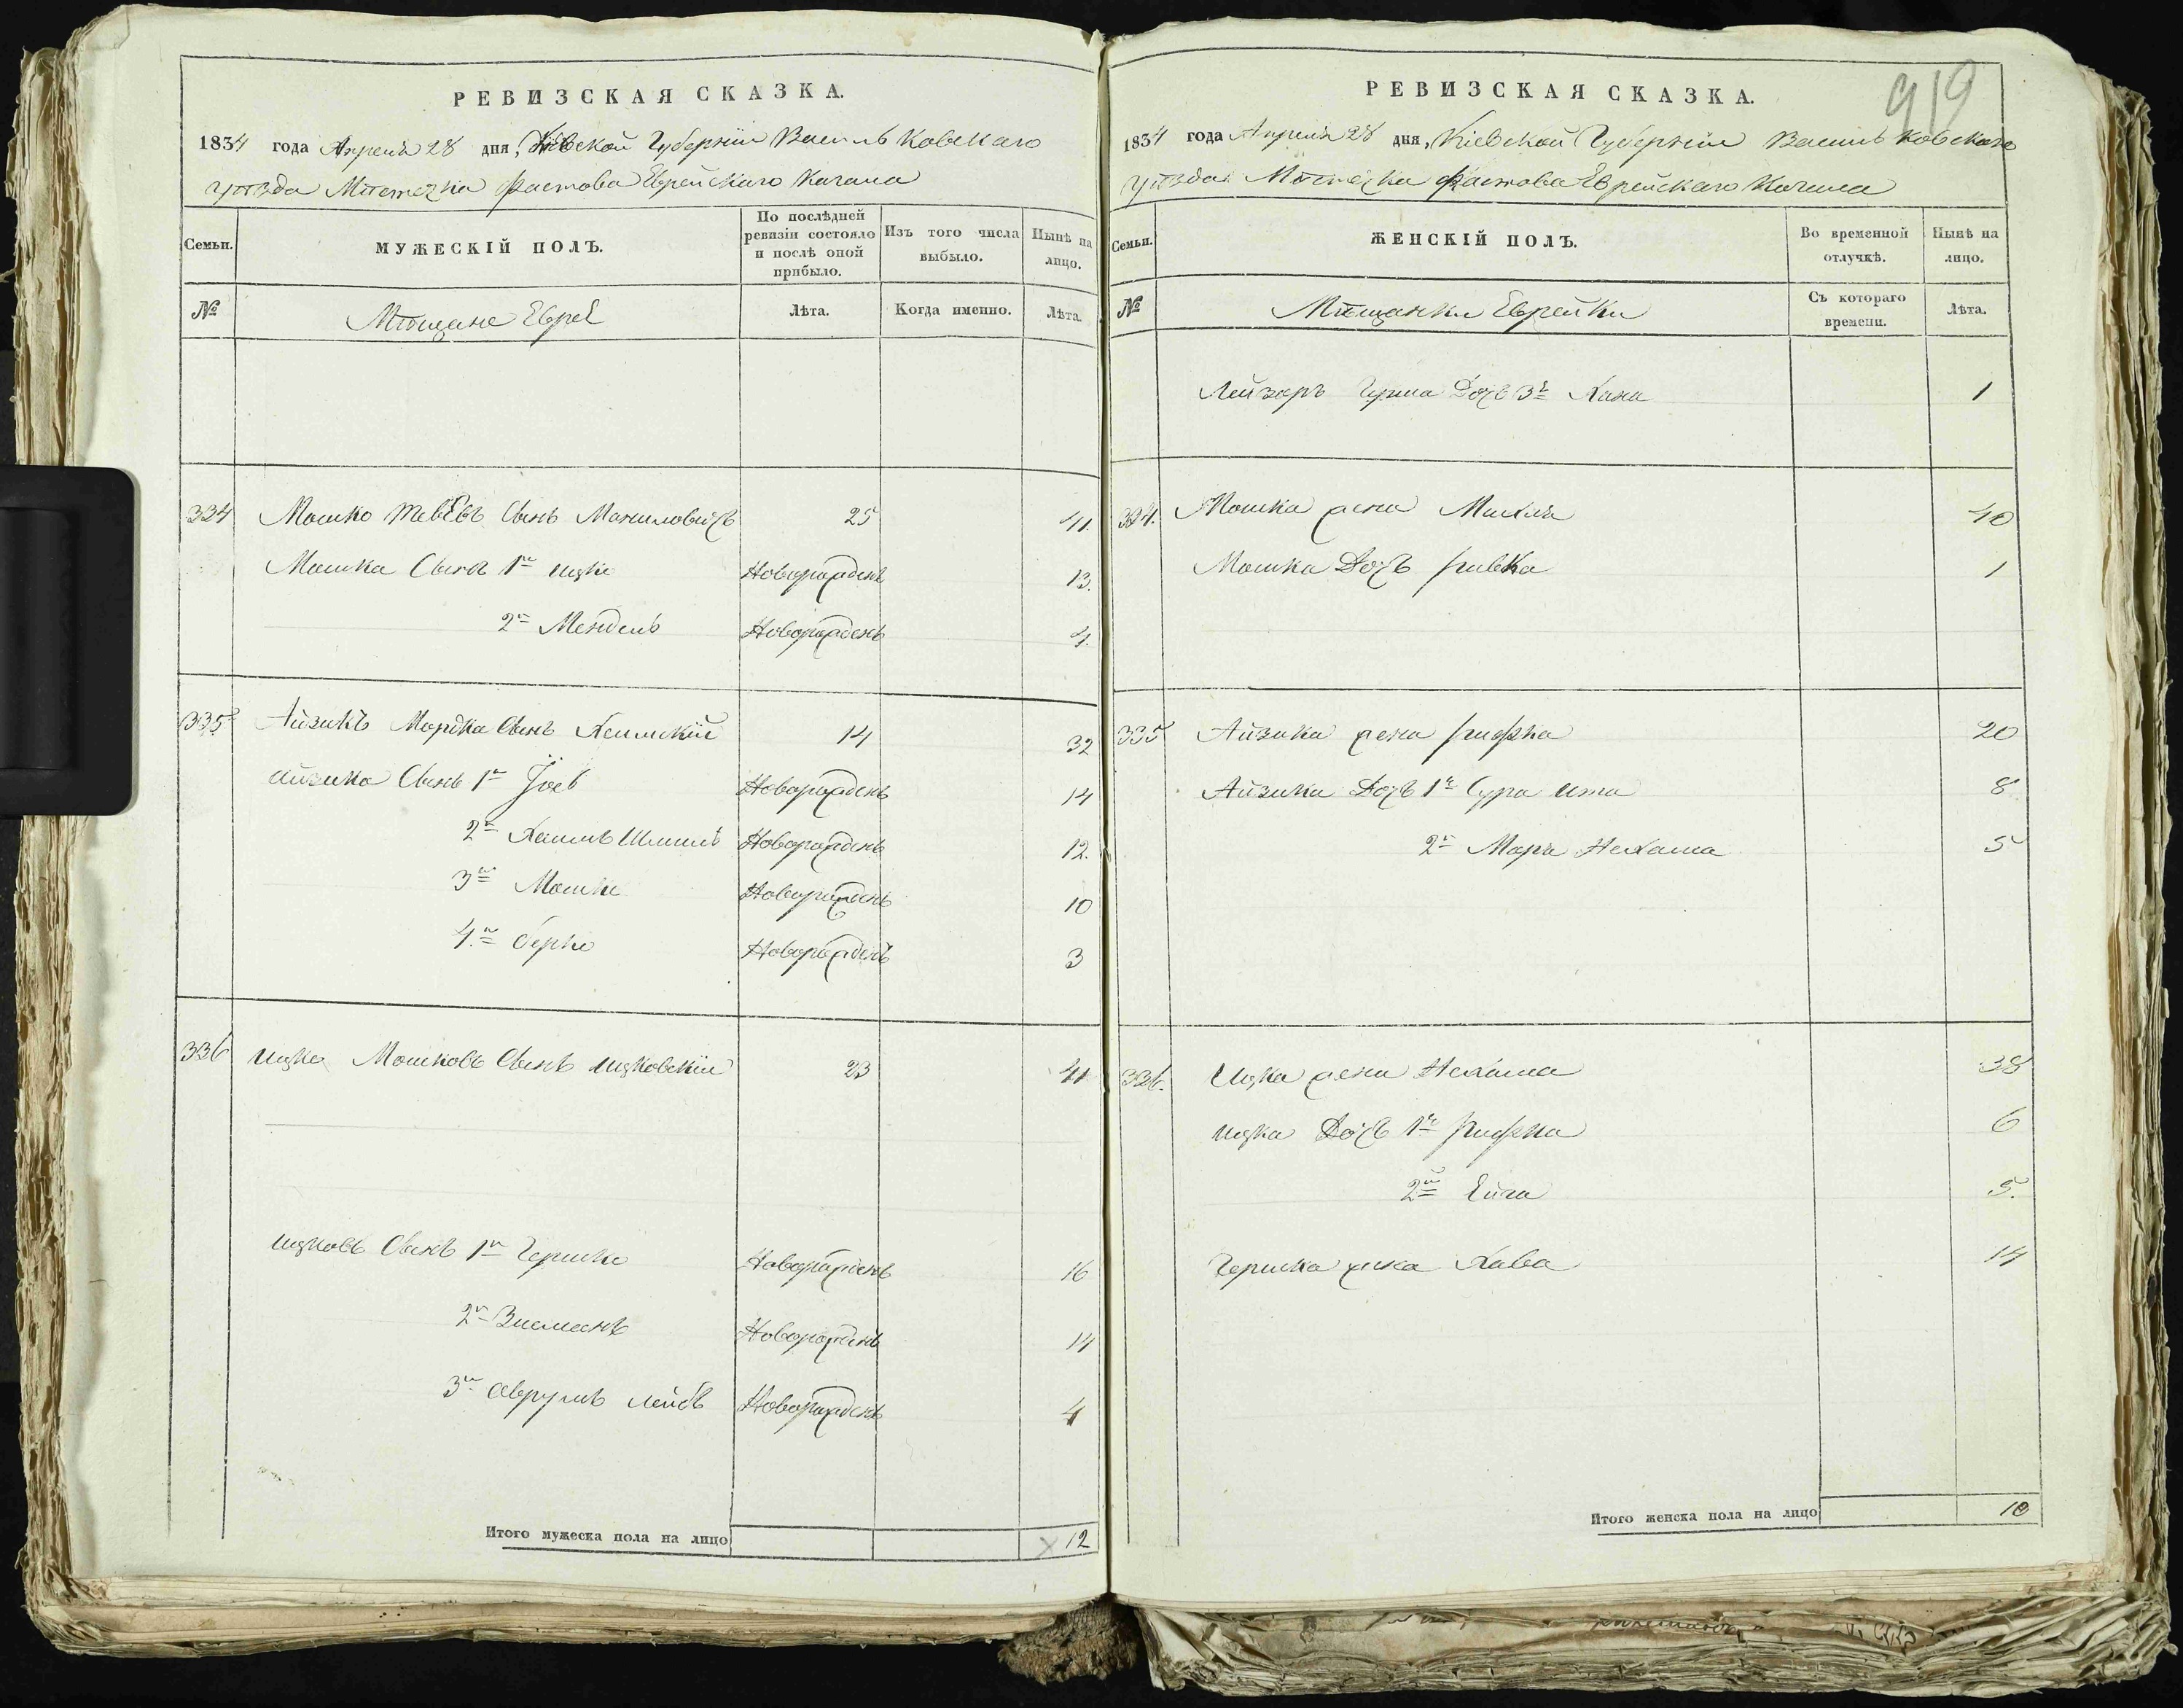 РЕВИЗСКАЯ СКАЗКА.
1834 года Апреля 28 дня, Кіевской Губерніи Васильковскаго
уѣзда Мѣстечка Фастова Еврейскаго Кагала
Семьи.
МУЖЕСКІЙ ПОЛЪ.
По послѣдней ревизіи состояло и послѣ оной прибыло.
Изъ того числа выбыло.
Нынѣ на лицо.
№
Мѣщане Евреи
Лѣта.
Когда именно.
Лѣта.
334 Мошко Тевевъ Сынъ Маниловичъ 25 41.
Мошка Сынъ 1й Ицко Новорожденъ 13.
2й Мендель Новорожденъ 4.
335 Айзикъ Мордка Сынъ 14 32
Айзика Сынъ 1й Іосъ Новорожденъ 14
2й Хаимъ Шмиль Новорожденъ 12.
3й Мошко Новорожденъ 10
4й берко Новорожденъ 3
336 Ицко Мошковъ Сынъ Ицковскій 23 41
Ицковъ Сынъ 1й Гершко Новорожденъ 16
2й Зисманъ Новорожденъ 14
3й Аврумъ Лейбъ Новорожденъ 4
Итого мужеска пола на лицо 12
919
РЕВИЗСКАЯ СКАЗКА.
1834 года Апреля 28 дня, Кіевской Губерніи Васильковскаго
уѣзда Мѣстечка Фастова Еврейскаго Кагала
Семьи.
ЖЕНСКІЙ ПОЛЪ.
Во временной отлучкѣ.
Нынѣ на лицо.
№
Мѣщанки Еврейки
Съ котораго времени.
Лѣта.
Лейзоръ Герша Дочь 3я Хана 1
334. Мошка жена Михля 40
Мошка Дочь Ривка 1
335 Айзика жена Рифка 20
Айзика Дочь 1я Сура Ита 8
2я Маря Нехама 5
336. Ицка жена Нехама 38
Ицка Дочь 1я Рифка 6
2я Ейга 5.
Гершка жена Хава 14
Итого женска пола на лицо 10